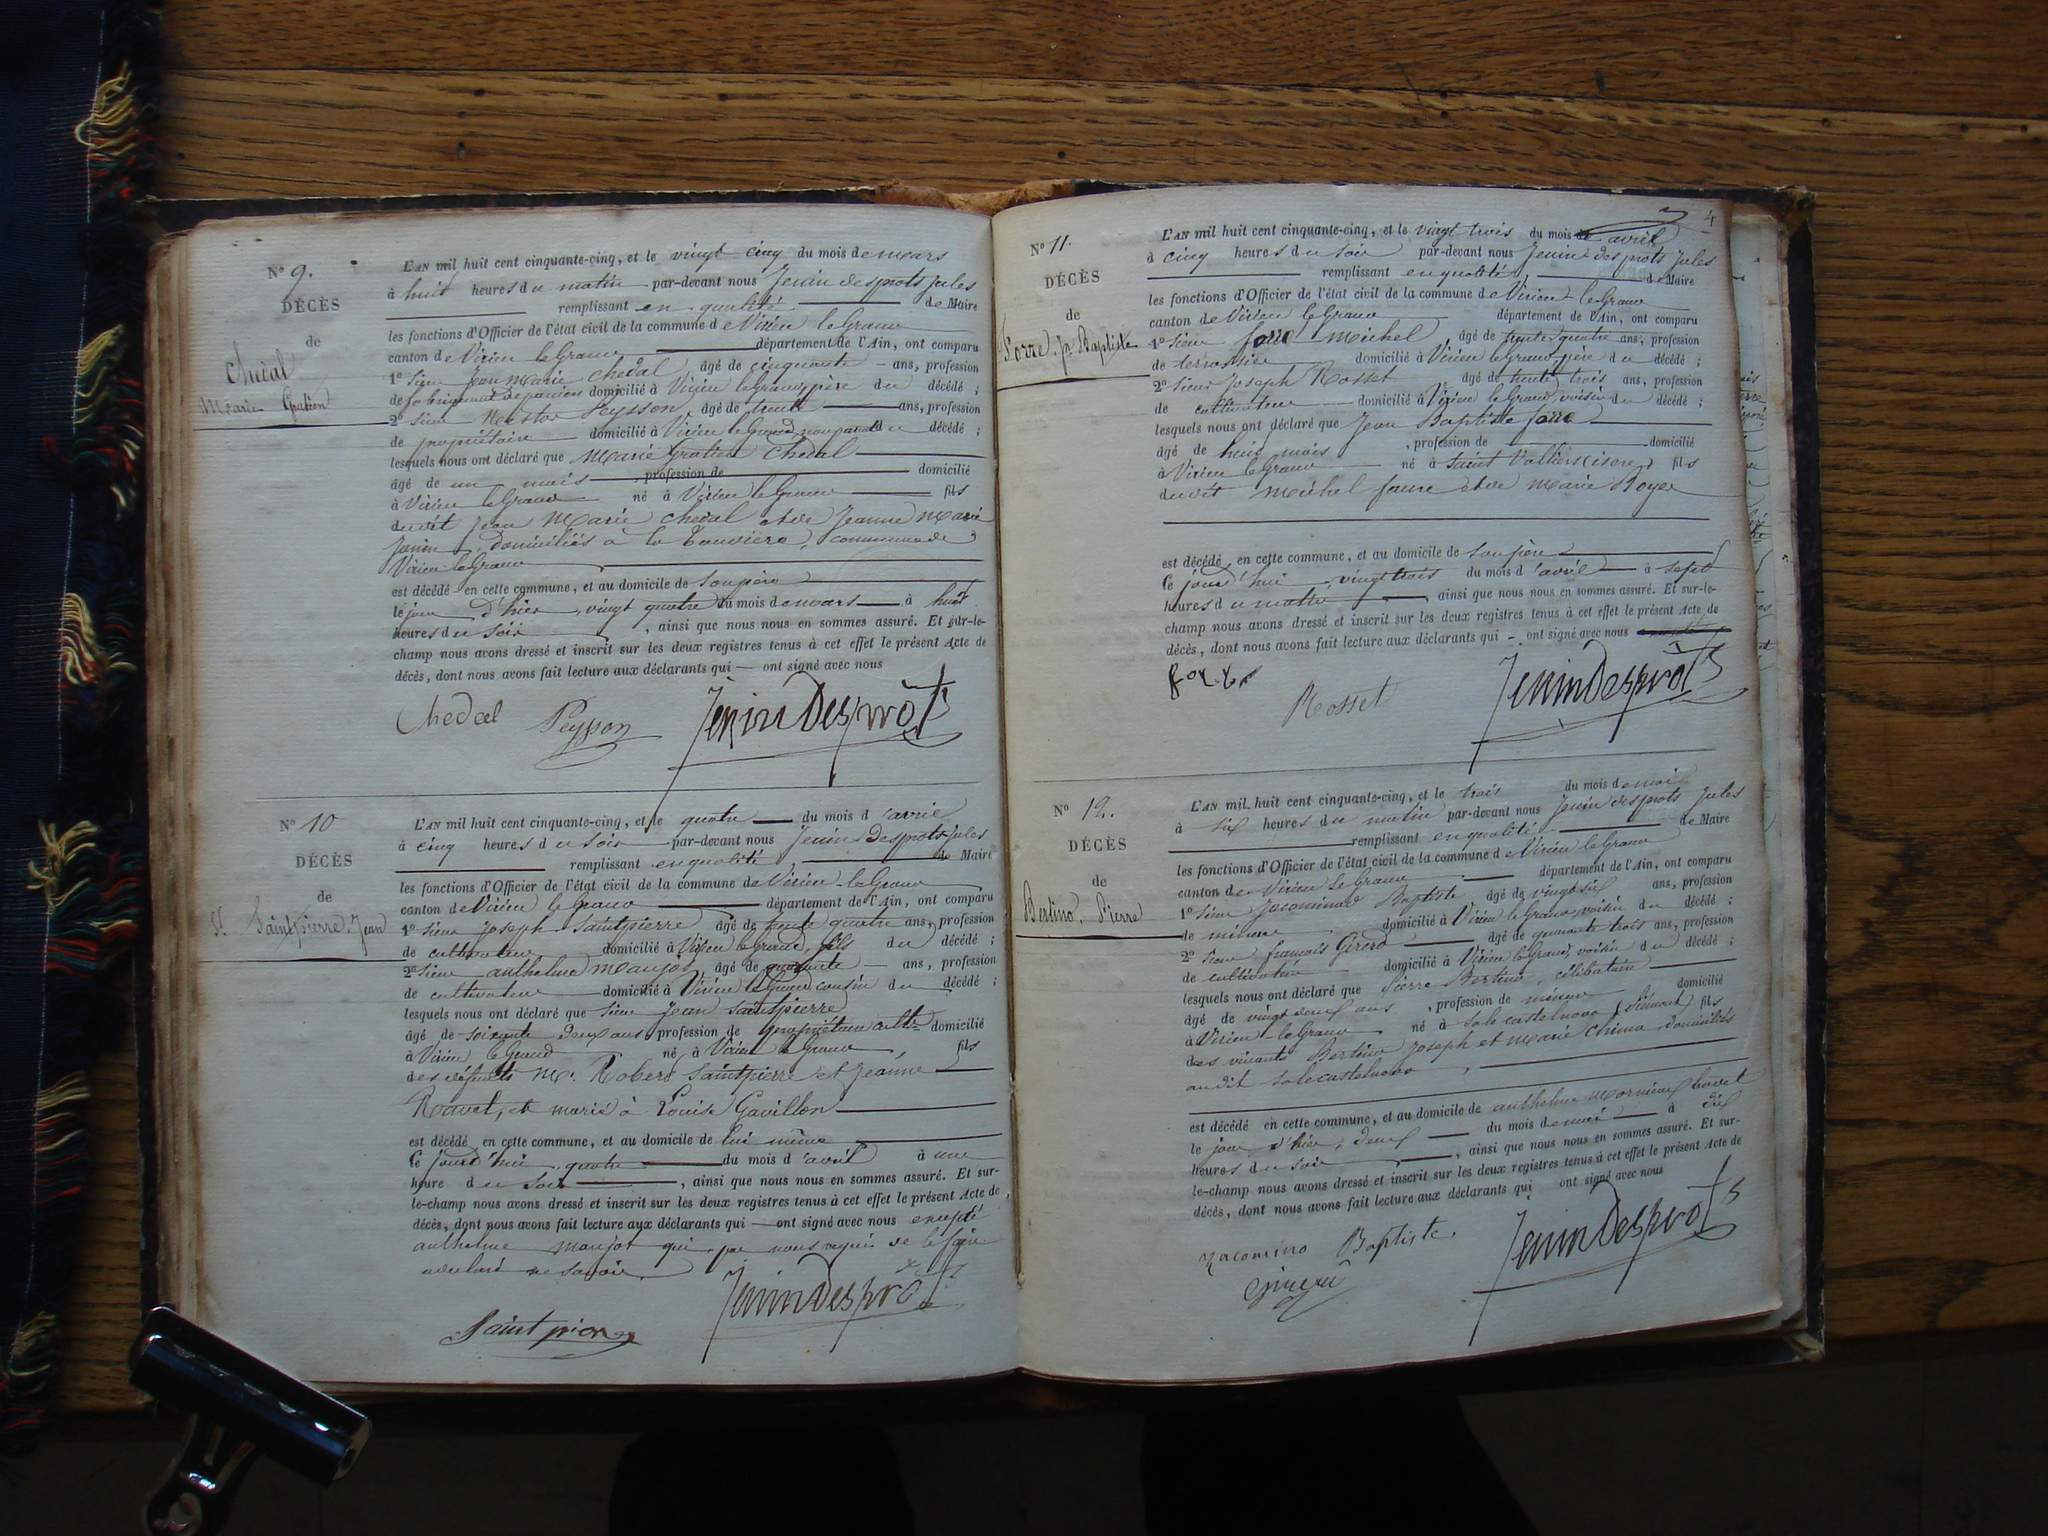 N° 9.
DÉCÈS
de
Chedal
Marie Gratien
L'AN mil huit cent cinquante-cinq, et le vingt cinq du mois de mars
à huit heures du matin par-devant nous Jenin desprots Jules
remplissant en qualité de Maire
les fonctions d'Officier de l'état civil de la commune de Virieu le Grand
canton de Virieu le Grand département de l'Ain, ont comparu
1° Sieur Jean Marie Chedal, âgé de cinquante ans, profession
de domicilié à Virieu le Grand, père du décédé ;
2° Sieur Nestor Peysson, âgé de trente ans, profession
de propriétaire domicilié à Virieu le Grand, non parent du décédé ;
lesquels nous ont déclaré que Marie Gratien Chedal
âgé de un mois, profession de domicilié
à Virieu le Grand né à Virieu le Grand fils
du dit Jean Marie Chedal et de Jeanne Marie
Janin, domiciliés à la commune de
Virieu le Grand
est décédé en cette commune, et au domicile de son père
le jour d'hier, vingt quatre du mois de mars à huit
heures du soir, ainsi que nous nous en sommes assuré. Et sur-le-
champ nous avons dressé et inscrit sur les deux registres tenus à cet effet le présent Acte de
décès, dont nous avons fait lecture aux déclarants qui — ont signé avec nous
Chedal Peysson Jenin Desprots
N° 10
DÉCÈS
de
St Saintpierre Jean
L'AN mil huit cent cinquante-cinq, et le quatre du mois d'avril
à cinq heures du soir par-devant nous Jenin Desprots Jules
remplissant en qualité, de Maire
les fonctions d'Officier de l'état civil de la commune de Virieu-le-Grand
canton de Virieu le Grand département de l'Ain, ont comparu
1° Sieur Joseph Saintpierre âgé de trente quatre ans, profession
de cultivateur domicilié à Virieu le Grand, fils du décédé ;
2° Sieur anthelme Maujot, âgé de quarante ans, profession
de cultivateur domicilié à Virieu le Grand cousin du décédé ;
lesquels nous ont déclaré que sieur Jean Saintpierre
âgé de soixante deux ans profession de propriétaire cultr domicilié
à Virieu le Grand né à Virieu le Grand, fils
des défunts Mr Robert Saintpierre et Jeanne
Ravet, et marié à Louise Gavillon
est décédé en cette commune, et au domicile de lui même
Ce jourd'hui quatre du mois d'avril à une
heure du soir, ainsi que nous nous en sommes assuré. Et sur-
le-champ nous avons dressé et inscrit sur les deux registres tenus à cet effet le présent Acte de
décès, dont nous avons fait lecture aux déclarants qui — ont signé avec nous excepté
anthelme Maujot qui par nous requis de le faire
a déclaré ne savoir.
Jenin Desprots
Saintpierre
4
N° 11.
DÉCÈS
de
Forre, Jn Baptiste
L'AN mil huit cent cinquante-cinq, et le vingt trois du mois d'avril
à cinq heures du soir par-devant nous Jenin desprots Jules
remplissant en qualité, de Maire
les fonctions d'Officier de l'état civil de la commune de Virieu-le-Grand
canton de Virieu le Grand département de l'Ain, ont comparu
1° Sieur Michel âgé de trente quatre ans, profession
de terrassier domicilié à Virieu le Grand, père du décédé ;
2° Sieur Joseph Rosset, âgé de trente trois ans, profession
de cultivateur domicilié à Virieu le Grand, voisin du décédé ;
lesquels nous ont déclaré que Jean Baptiste
âgé de huit mois, profession de domicilié
à Virieu le Grand né à Saint Valliers (isere) fils
du dit Michel et de Marie Boyer
est décédé en cette commune, et au domicile de son père
Ce jourd'hui vingt trois du mois d'avril à sept
heures du matin, ainsi que nous nous en sommes assuré. Et sur-le-
champ nous avons dressé et inscrit sur les deux registres tenus à cet effet le présent Acte de
décès, dont nous avons fait lecture aux déclarants qui — ont signé avec nous
Rosset Jenin Desprots
N° 12.
DÉCÈS
de
Bertino. Pierre
L'AN mil huit cent cinquante-cinq, et le trois du mois de mai
à six heures du matin par-devant nous Jenin desprots Jules
remplissant en qualité de Maire
les fonctions d'Officier de l'état civil de la commune de Virieu le Grand
canton de Virieu le Grand département de l'Ain, ont comparu
1° Sieur Jacomino Baptiste âgé de vingt six ans, profession
de mineur domicilié à Virieu le Grand, voisin du décédé ;
2° Sieur françois Girerd âgé de quarante trois ans, profession
de cultivateur domicilié à Virieu le Grand, voisin du décédé ;
lesquels nous ont déclaré que Pierre Bertino, célibataire
âgé de ans, profession de mineur domicilié
à Virieu-le-Grand né à Sale Castelnovo (Piémont) fils
des vivants Bertino Joseph et Marie Chima, domiciliés
au dit Sale Castelnovo,
est décédé en cette commune, et au domicile de anthelme Mornieux
le jour d'hier, deux du mois de mai à dix
heures du soir, ainsi que nous nous en sommes assuré. Et sur-
le-champ nous avons dressé et inscrit sur les deux registres tenus à cet effet le présent Acte de
décès, dont nous avons fait lecture aux déclarants qui ont signé avec nous
Baptiste Jenin Desprots